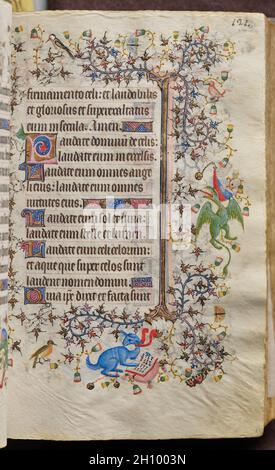 121.
firmamento celi: et laudabilis
et gloriosus et superexaltatus
eum in secula. Amen.
Laudate dominū de celis:
laudate eum in excelsis.
Laudate eum omnes ange
li eius: laudate eum omnes
uirtutes eius.
Laudate eum sol et luna:
laudate eum stelle et lumen.
Laudate eum celi celorum:
et aque que super celos sunt
laudent nomen domini.
Quia ip̄e dixit et facta sunt
alamy
Image ID: 2H1003N
www.alamy.com